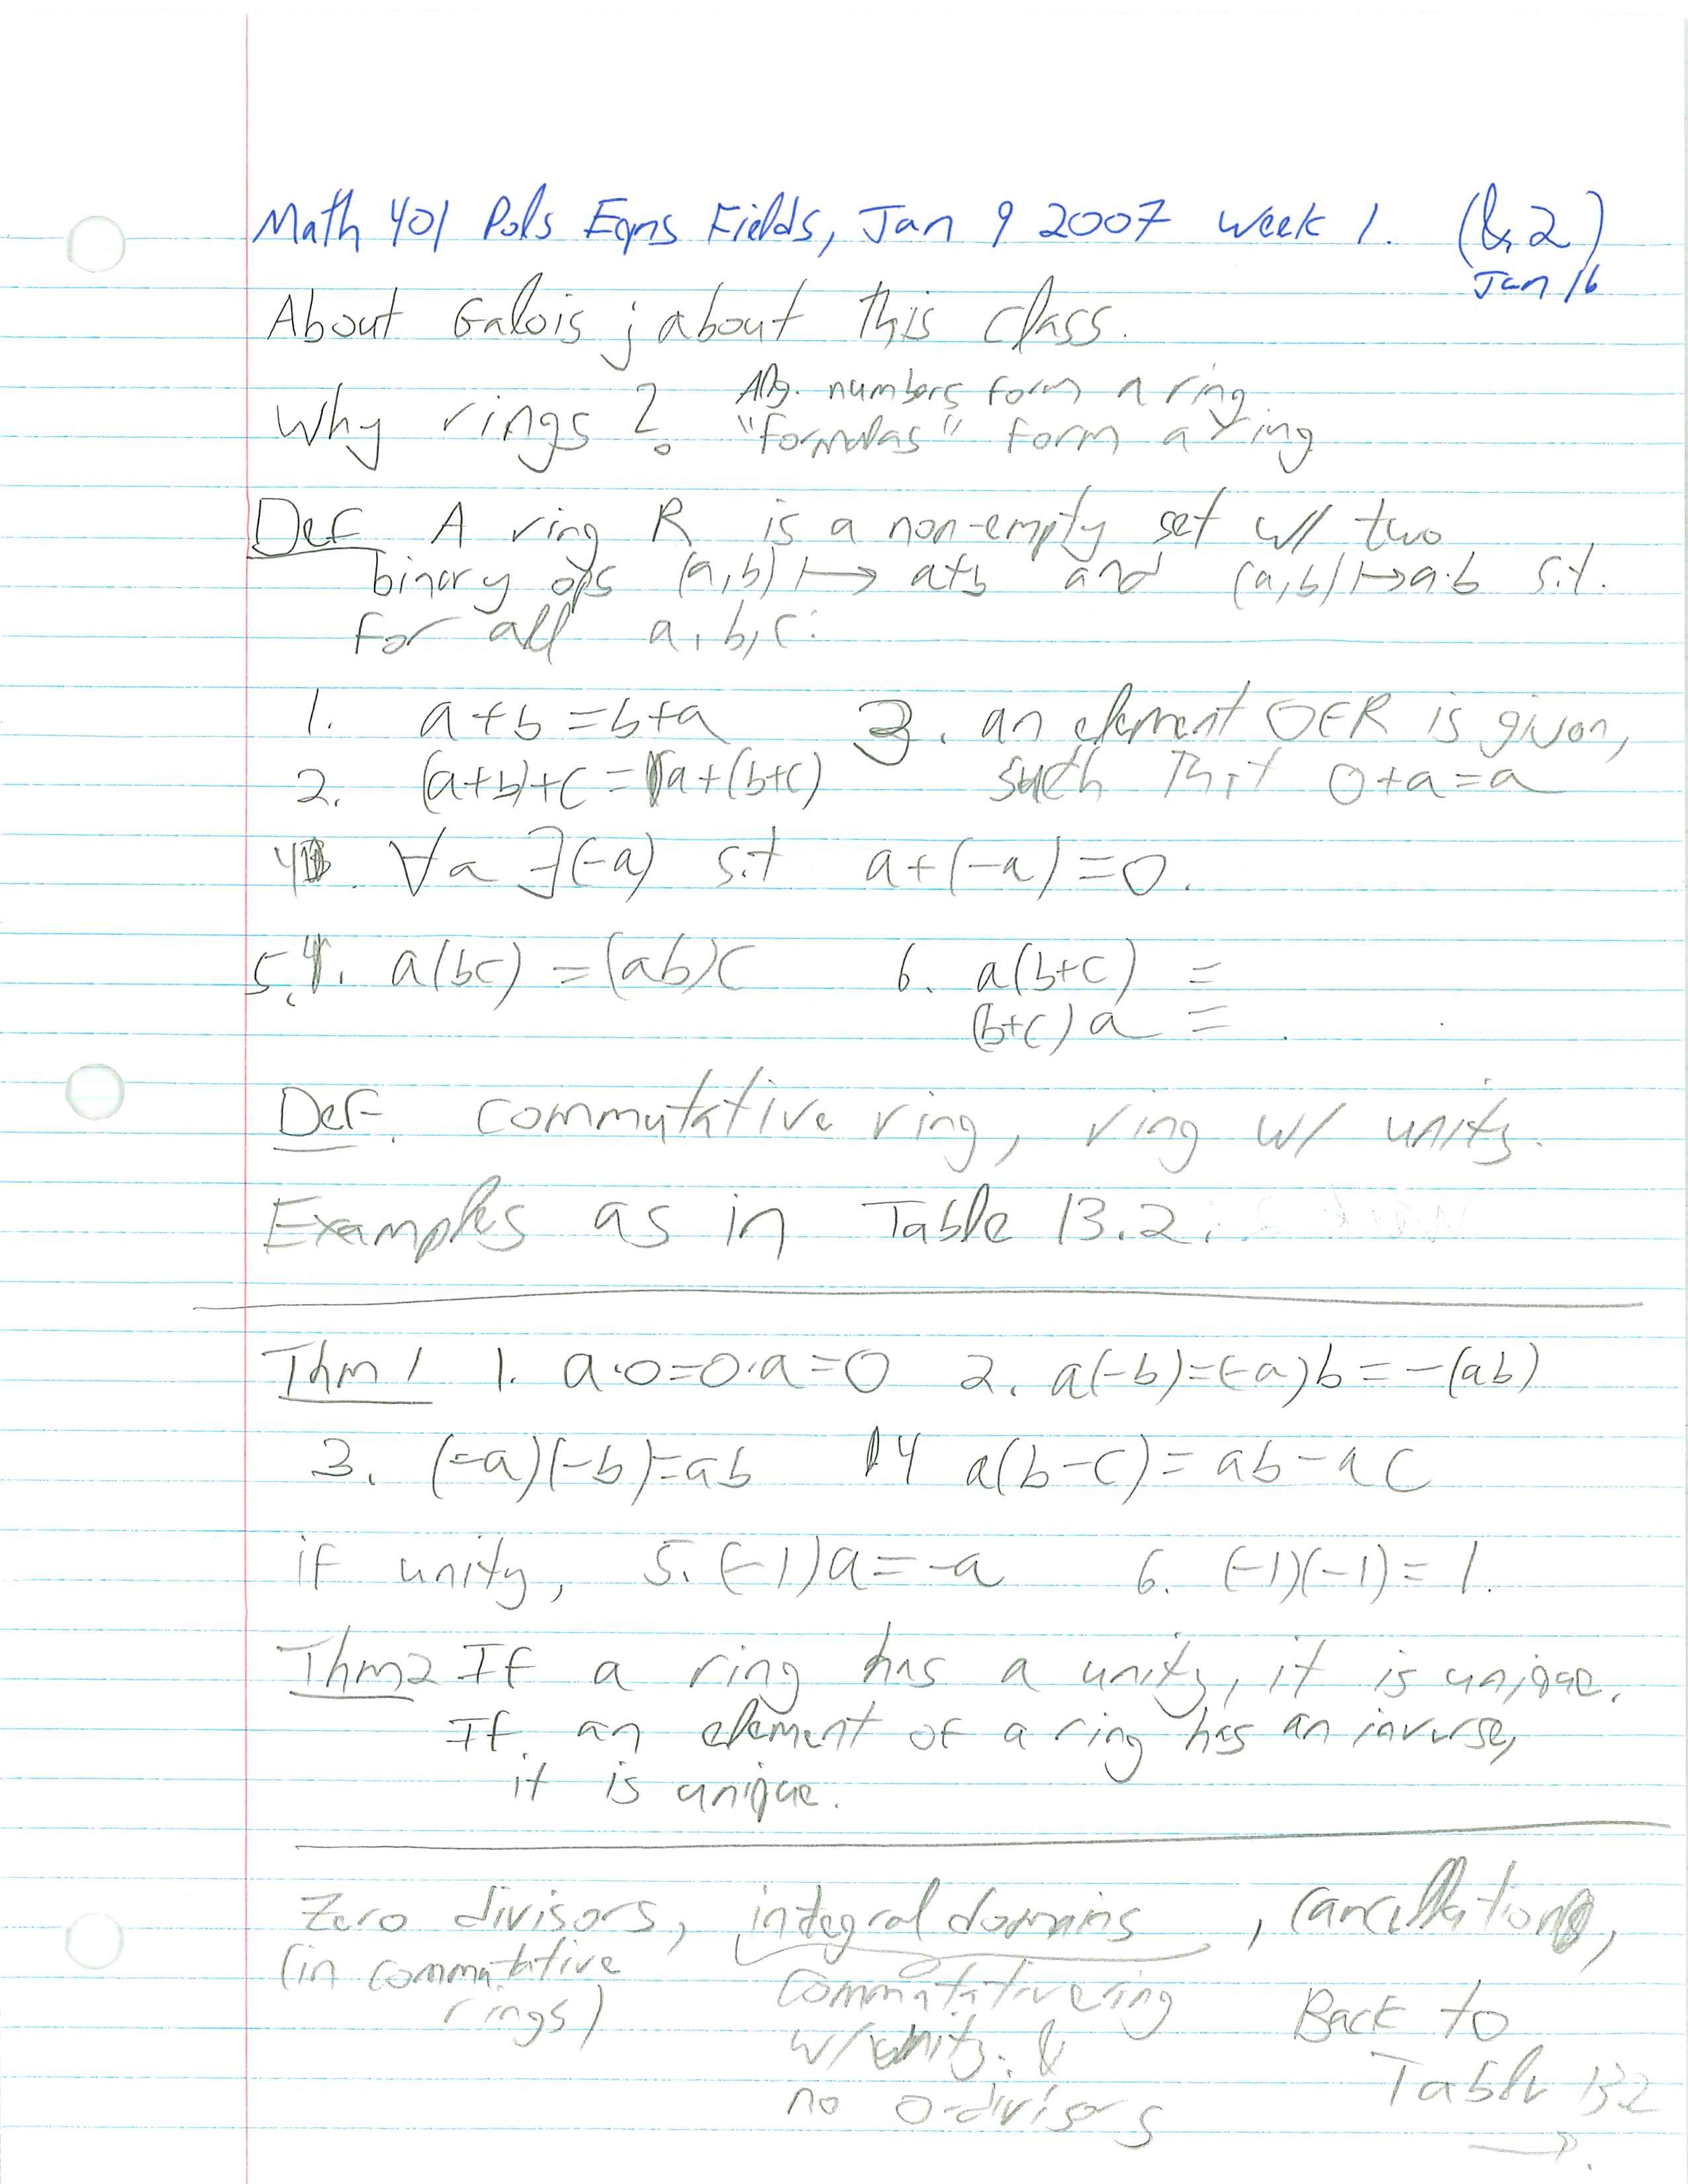 Math 401 Pols Eqns Fields, Jan 9 2007 week 1. (& 2)
Jan 16
About Galois; about this class.
Why rings? Alg. numbers form a ring
"formulas" form a ring
Def A ring R is a non-empty set w/ two
binary ops (a,b) ↦ a+b and (a,b) ↦ a·b s.t.
for all a, b, c:
1. a+b=b+a 3. an element 0∈R is given,
2. (a+b)+c = a+(b+c) such that 0+a=a
4. ∀a ∃(-a) s.t a+(-a)=0.
5. a(bc) = (ab)c 6. a(b+c) =
(b+c)a = .
Def. commutative ring, ring w/ unity.
Examples as in Table 13.2.
Thm 1 1. a·0=0·a=0 2. a(-b)=(-a)b=-(ab)
3. (-a)(-b)=ab 4 a(b-c)=ab-ac
if unity, 5. (-1)a=-a 6. (-1)(-1)=1.
Thm2 If a ring has a unity, it is unique.
If an element of a ring has an inverse,
it is unique.
Zero divisors, integral domains, cancellation,
(in commutative rings)
commutative ring
w/ unity. &
no 0-divisors
Back to
Table 13.2
→